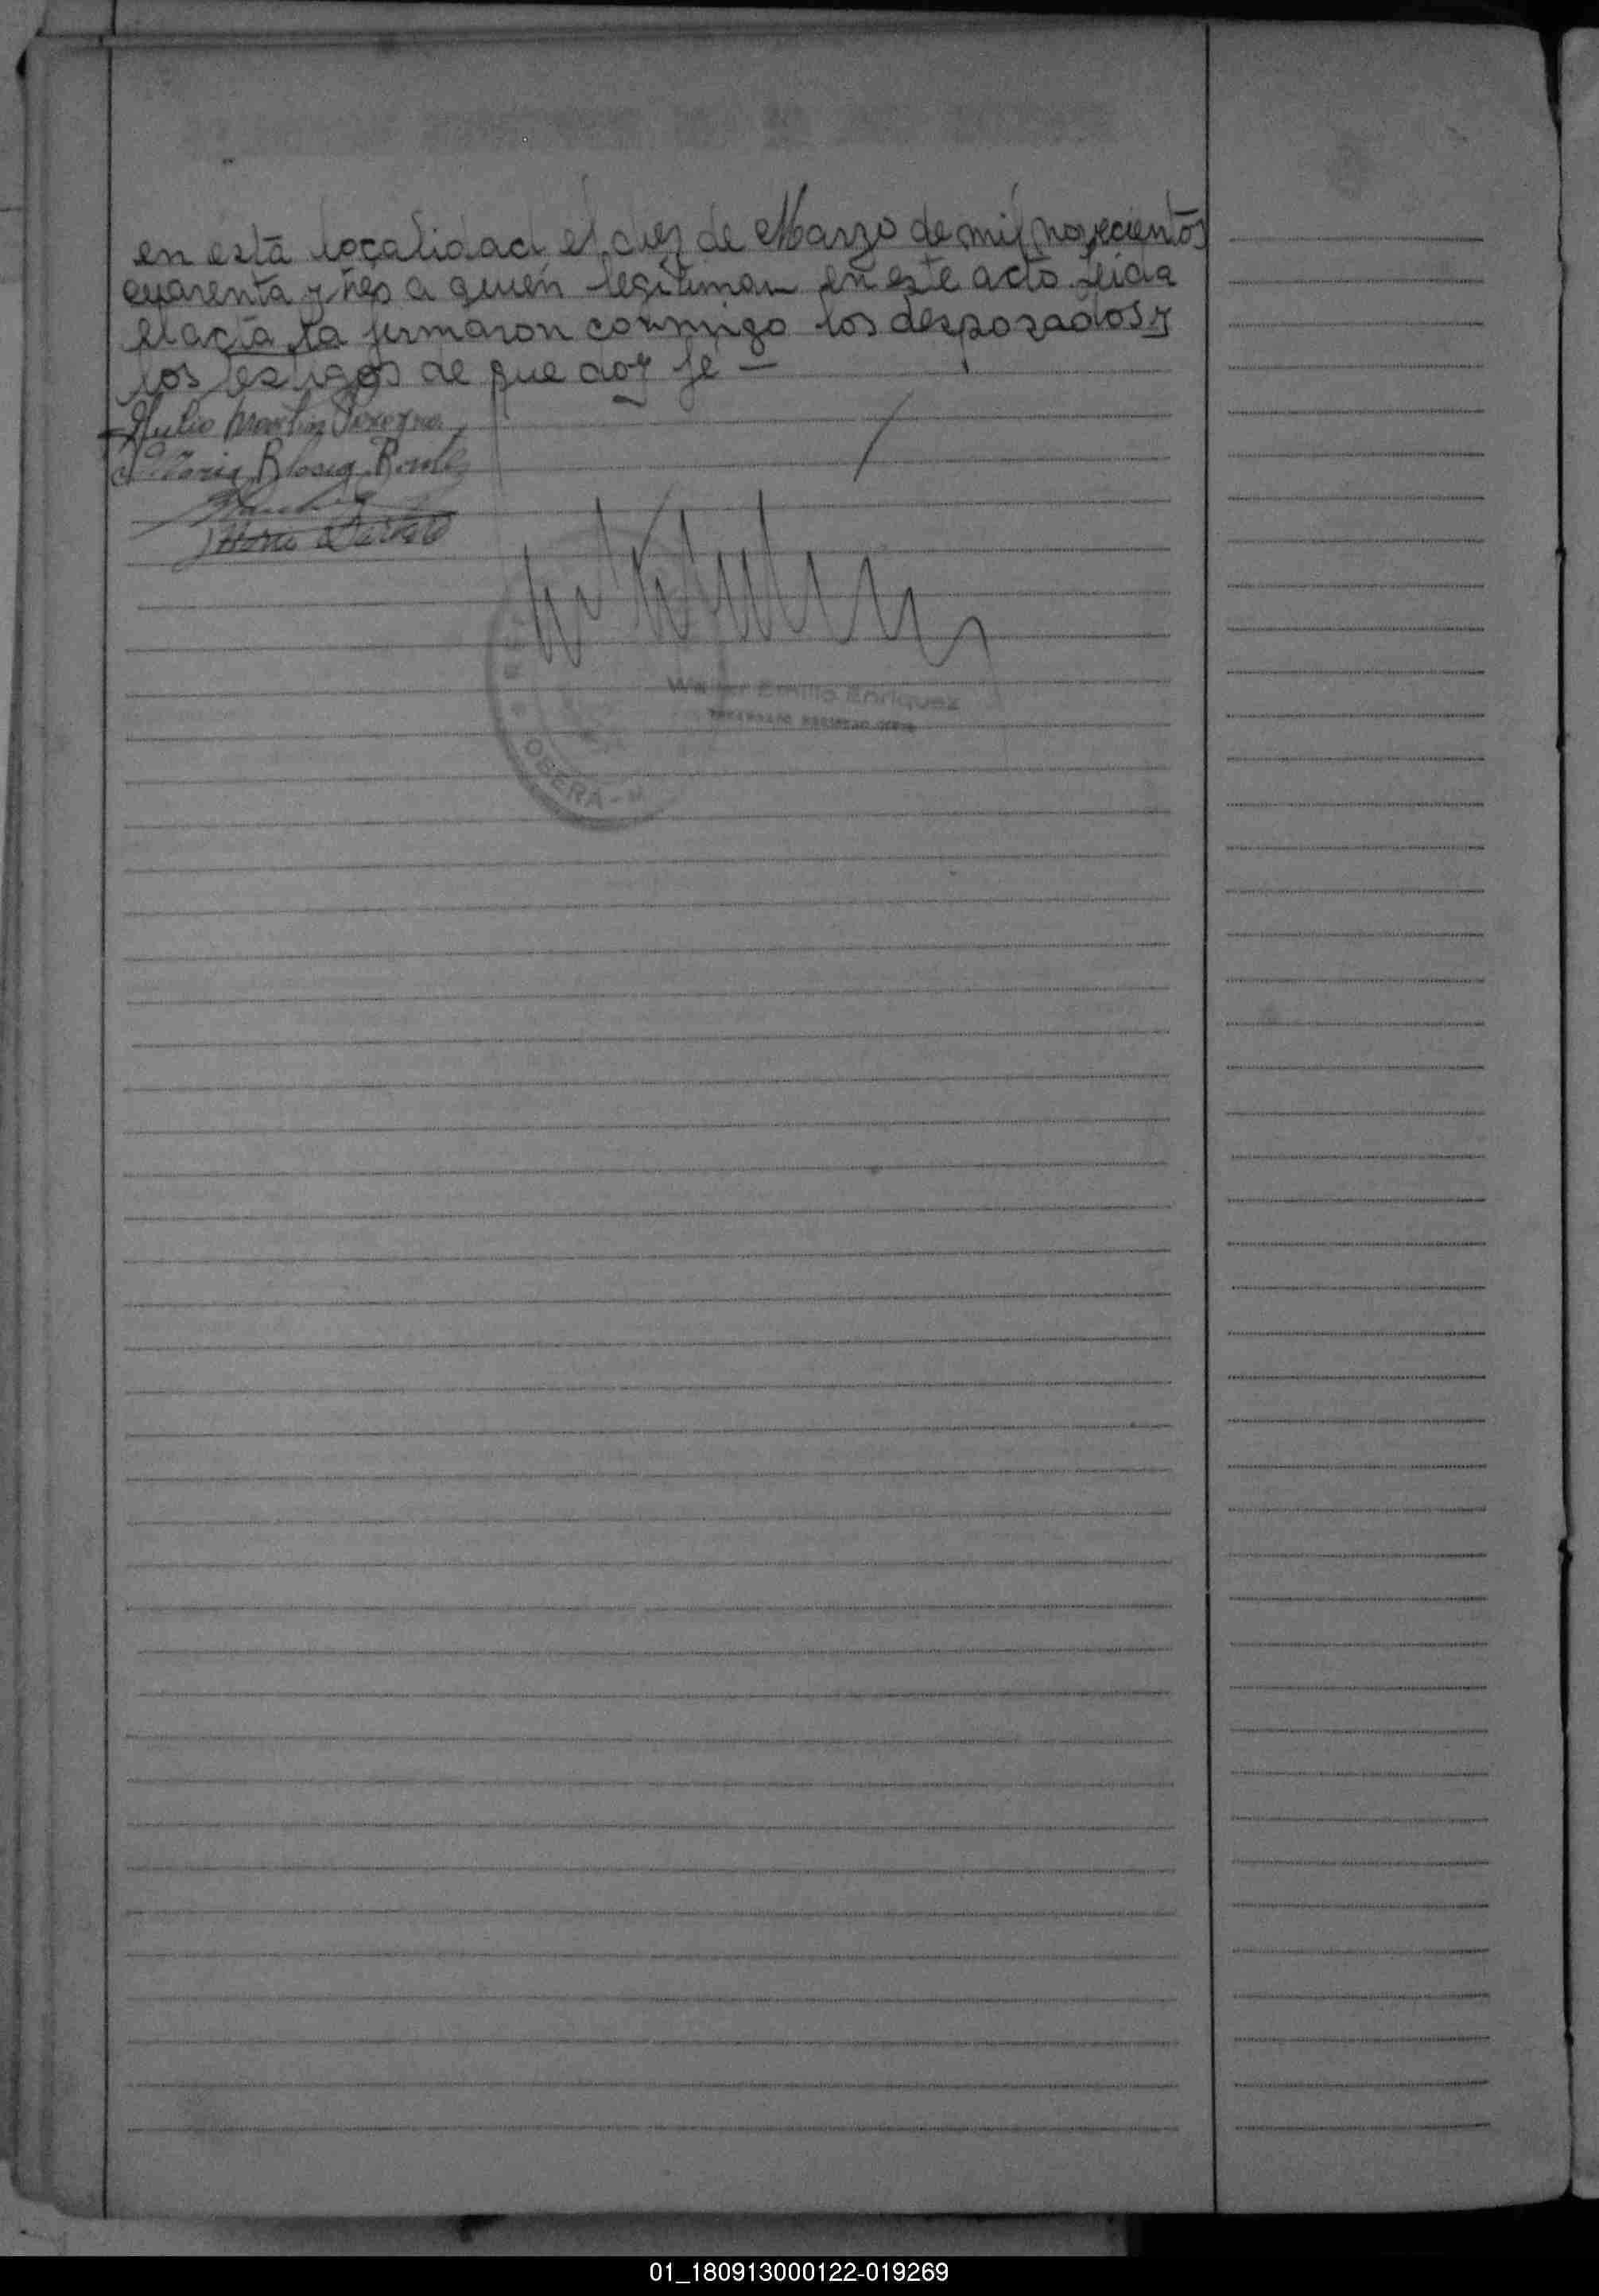 en esta localidad el diez de Marzo de mil novecientos
cuarenta y tres a quién legitiman en este acto. Leida
el acta la firmaron conmigo los desposados y
los testigos de que doy fé —
Julio Martin
Maria
Maria
Walter Emilio Enriquez
OBERA - M
01_180913000122-019269